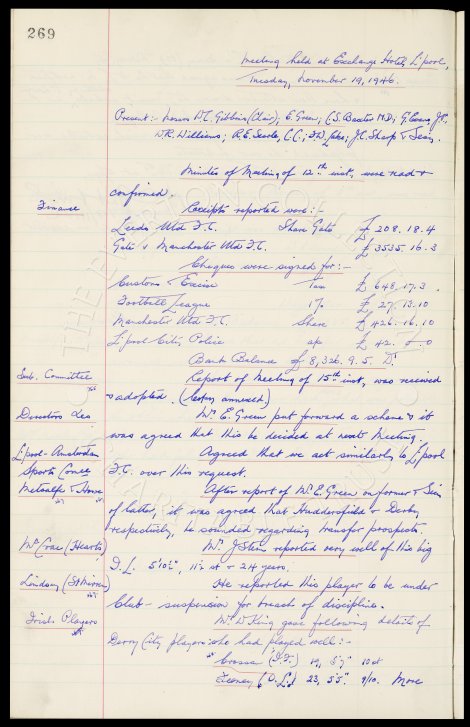 269
Meeting held at Exchange Hotel, L'pool,
Tuesday, November 19, 1946.
Present:- Messrs W.C. Gibbins (Chair); E. Green; C.S. Baxter M.D; G. Evans J.P.
W.R. Williams; R.E. Searle, C.C.; J.C. Sharp & Secy.
Minutes of Meeting of 12th inst. were read &
confirmed.
Finance Receipts reported were:-
Leeds Utd F.C. Share Gate £208.18.4
Gate v Manchester Utd F.C. £3535.16.3
Cheques were signed for:-
Customs & Excise Tax £648.17.3
Football League 1% £27.13.10
Manchester Utd F.C. Share £426.16.10
L'pool City Police a/c £42.0.0
Bank Balance £8,326.9.5. Dr
Sub. Committee Report of Meeting of 15th inst. was received
& adopted. (Copy annexed)
Directors Mr. E. Green put forward a scheme & it
was agreed that this be decided at next Meeting.
L'pool-Amsterdam Agreed that we act similarly to L'pool
Sports F.C. over this request.
Metcalfe & Howe After report of Mr. E. Green on former & Secy
of latter, it was agreed that Huddersfield & Derby
respectively, be sounded regarding transfer prospects.
Mr Crae (Hearts) Mr. J. Stein reported very well of this big
I.L. 5'10½", 11½ st & 24 years.
Lindsay (St Mirren) He reported this player to be under
Club-suspension for breach of discipline.
Irish Players Mr. D. King gave following details of
Derry City players who had played well:-
Crossan (I.F.) 19, 5'7" 10st
Feeney (O.L.) 23, 5'5" 9/10. More